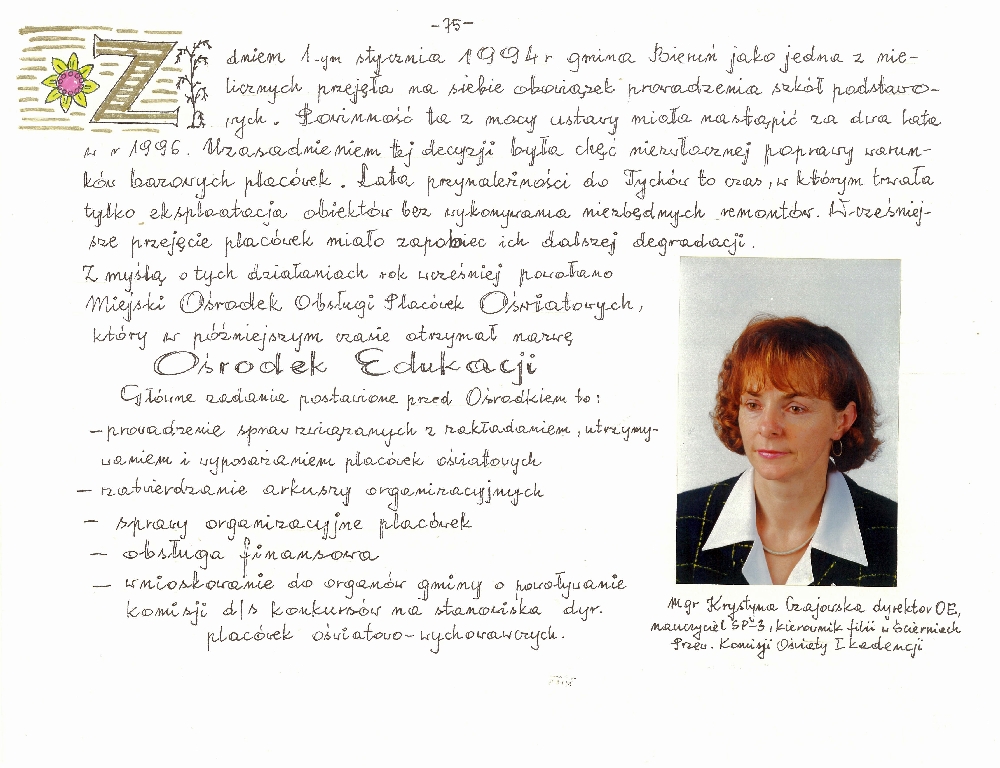 -75-
Z dniem 1-ym stycznia 1994 r gmina Bieruń jako jedna z nie-
licznych przejęła na siebie obowiązek prowadzenia szkół podstawo-
wych. Powinność ta z mocy ustawy miała nastąpić za dwa lata
w r 1996. Uzasadnieniem tej decyzji była chęć niezwłocznej poprawy warun-
ków bazowych placówek. Lata przynależności do Tychów to czas, w którym trwała
tylko eksploatacja obiektów bez wykonywania niezbędnych remontów. Wcześniej-
sze przejęcie placówek miało zapobiec ich dalszej degradacji.
Z myślą o tych działaniach rok wcześniej powołano
Miejski Ośrodek Obsługi Placówek Oświatowych,
który w późniejszym czasie otrzymał nazwę
Ośrodek Edukacji
Główne zadania postawione przed Ośrodkiem to:
- prowadzenie spraw związanych z zakładaniem, utrzymy-
waniem i wyposażaniem placówek oświatowych
- zatwierdzanie arkuszy organizacyjnych
- sprawy organizacyjne placówek
- obsługa finansowa
- wnioskowanie do organów gminy o powoływanie
komisji d/s konkursów na stanowiska dyr.
placówek oświatowo-wychowawczych.
mgr Krystyna Czajowska dyrektor OE,
nauczyciel SP-3, kierownik filii w Ścierniach
Przew. Komisji Oświaty I kadencji